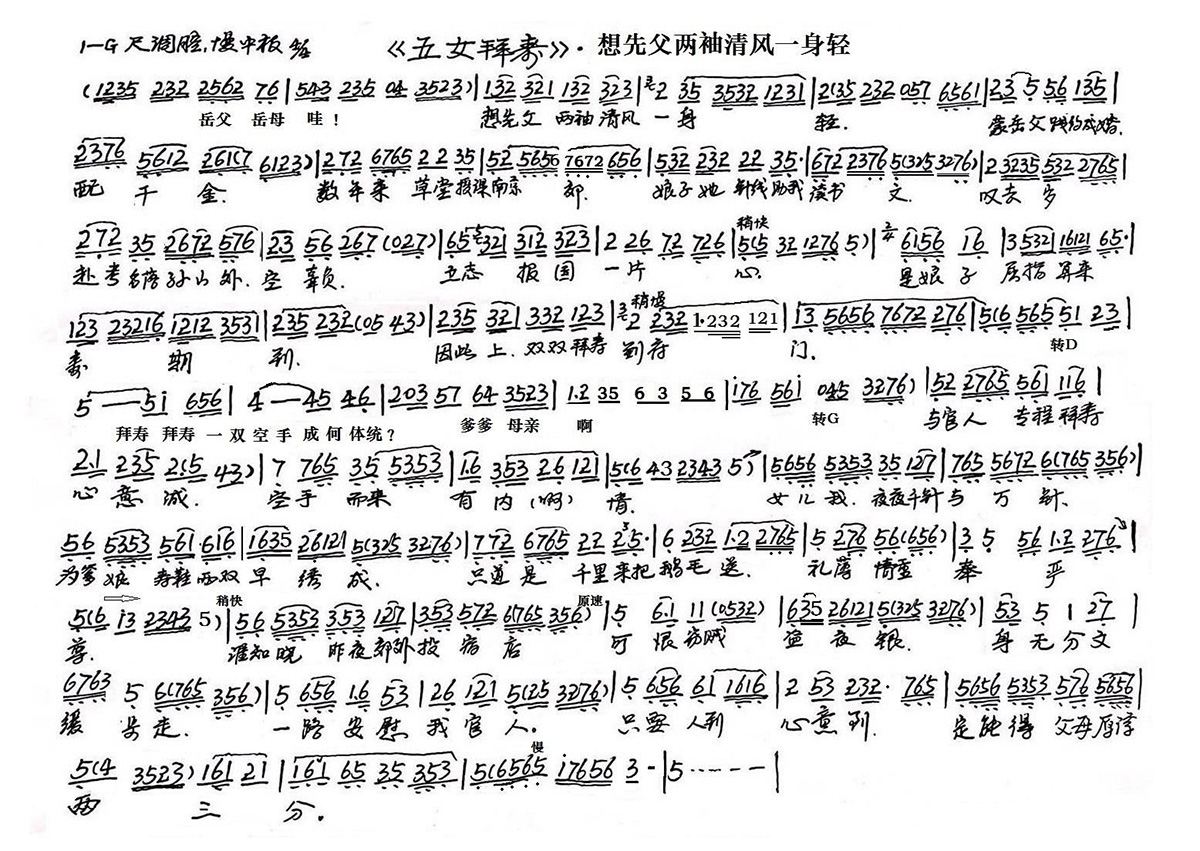 1=G 尺调腔,慢中板 《五女拜寿》·想先父两袖清风一身轻
(1235 232 2562 76 | 543 235 04 3523) | 132 321 132 323 | 2 35 3532 1231 | 2(35 232 057 6561 | 23 5 56 135 |
岳父 岳母 哇! 想先父 两袖清风 一身 轻. 蒙岳父践约成婚.
2376 5612 261(7 6123) | 272 6765 22 35 | 52 5656 7672 656 | 532 232 22 35· | 672 2376 5(325 3276) | 2 3235 532 2765 |
配 千 金. 数年来 草堂授课南京 郎. 娘子她 针线助我读书 文. 叹去岁
272 35 2672 576 | 23 56 267 (027) | 65 321 312 323 | 2 26 72 726 | 稍快 5(5 32 1276 5) | 6156 16 | 3 532 16121 65· |
赴考名落孙山外. 空 辜负. 立志 报 国 一片 心. 是娘 子 屈指 算来
123 23216 1212 3531 | 235 232 (05 43) | 235 321 332 123 | 稍慢 2 232 1·232 121 | 13 5656 7672 276 | 5(6 565 51 23 |
寿 期 到. 因此上. 双双拜寿 到府 门. 转D
5—5i 656 | 4—45 46 | 203 57 64 3523 | 1.2 35 63 56 | i76 56i 045 3276) | 52 2765 561 116 |
拜寿 拜寿 一双空手成何体统? 爹爹 母亲 啊 转G 与官人 专程拜寿
2.1 235 2(5 43) | 7 765 35 5353 | 16 353 26 121 | 5(6 43 2343 5) | 5656 5353 35 127 | 765 5672 6(765 356) |
心 意 诚. 空手 而来 有 内 (啊) 情. 女儿我. 夜夜千针与 万 针.
56 5353 561·616 | 1635 26121 5(325 3276) | 772 6765 22 25· | 6 232 1·2 2765 | 5 276 56(656) | 3 5 56 1.2 276 |
为爹 娘 寿鞋两双 早 绣 成. 只道是 千里来把鹅毛 送. 礼薄 情重 奉 严
5(6 i3 2343 5) | 稍快 56 5353 3·53 127 | 353 572 6(765 356) | 原速 5 6·1 11 (0532) | 635 26121 5(325 3276) | 53 5 1 27 |
尊. 谁知晓 昨夜郊外投 宿 店 可 恨窃贼 盗 夜 银. 身 无 分文
6763 5 6(765 356) | 5 656 1·6 53 | 26 121 5(325 3276) | 5 656 61 1616 | 2 53 232· 765 | 5656 5353 576 5656 |
缓 步走. 一路安慰 我官 人. 只要 人到 心意到. 定能得 父母厚谆
5(4 3523) 161 21 | 161 65 35 353 | 慢 5(6565 i7656 3- | 5······ |
两 三 分.